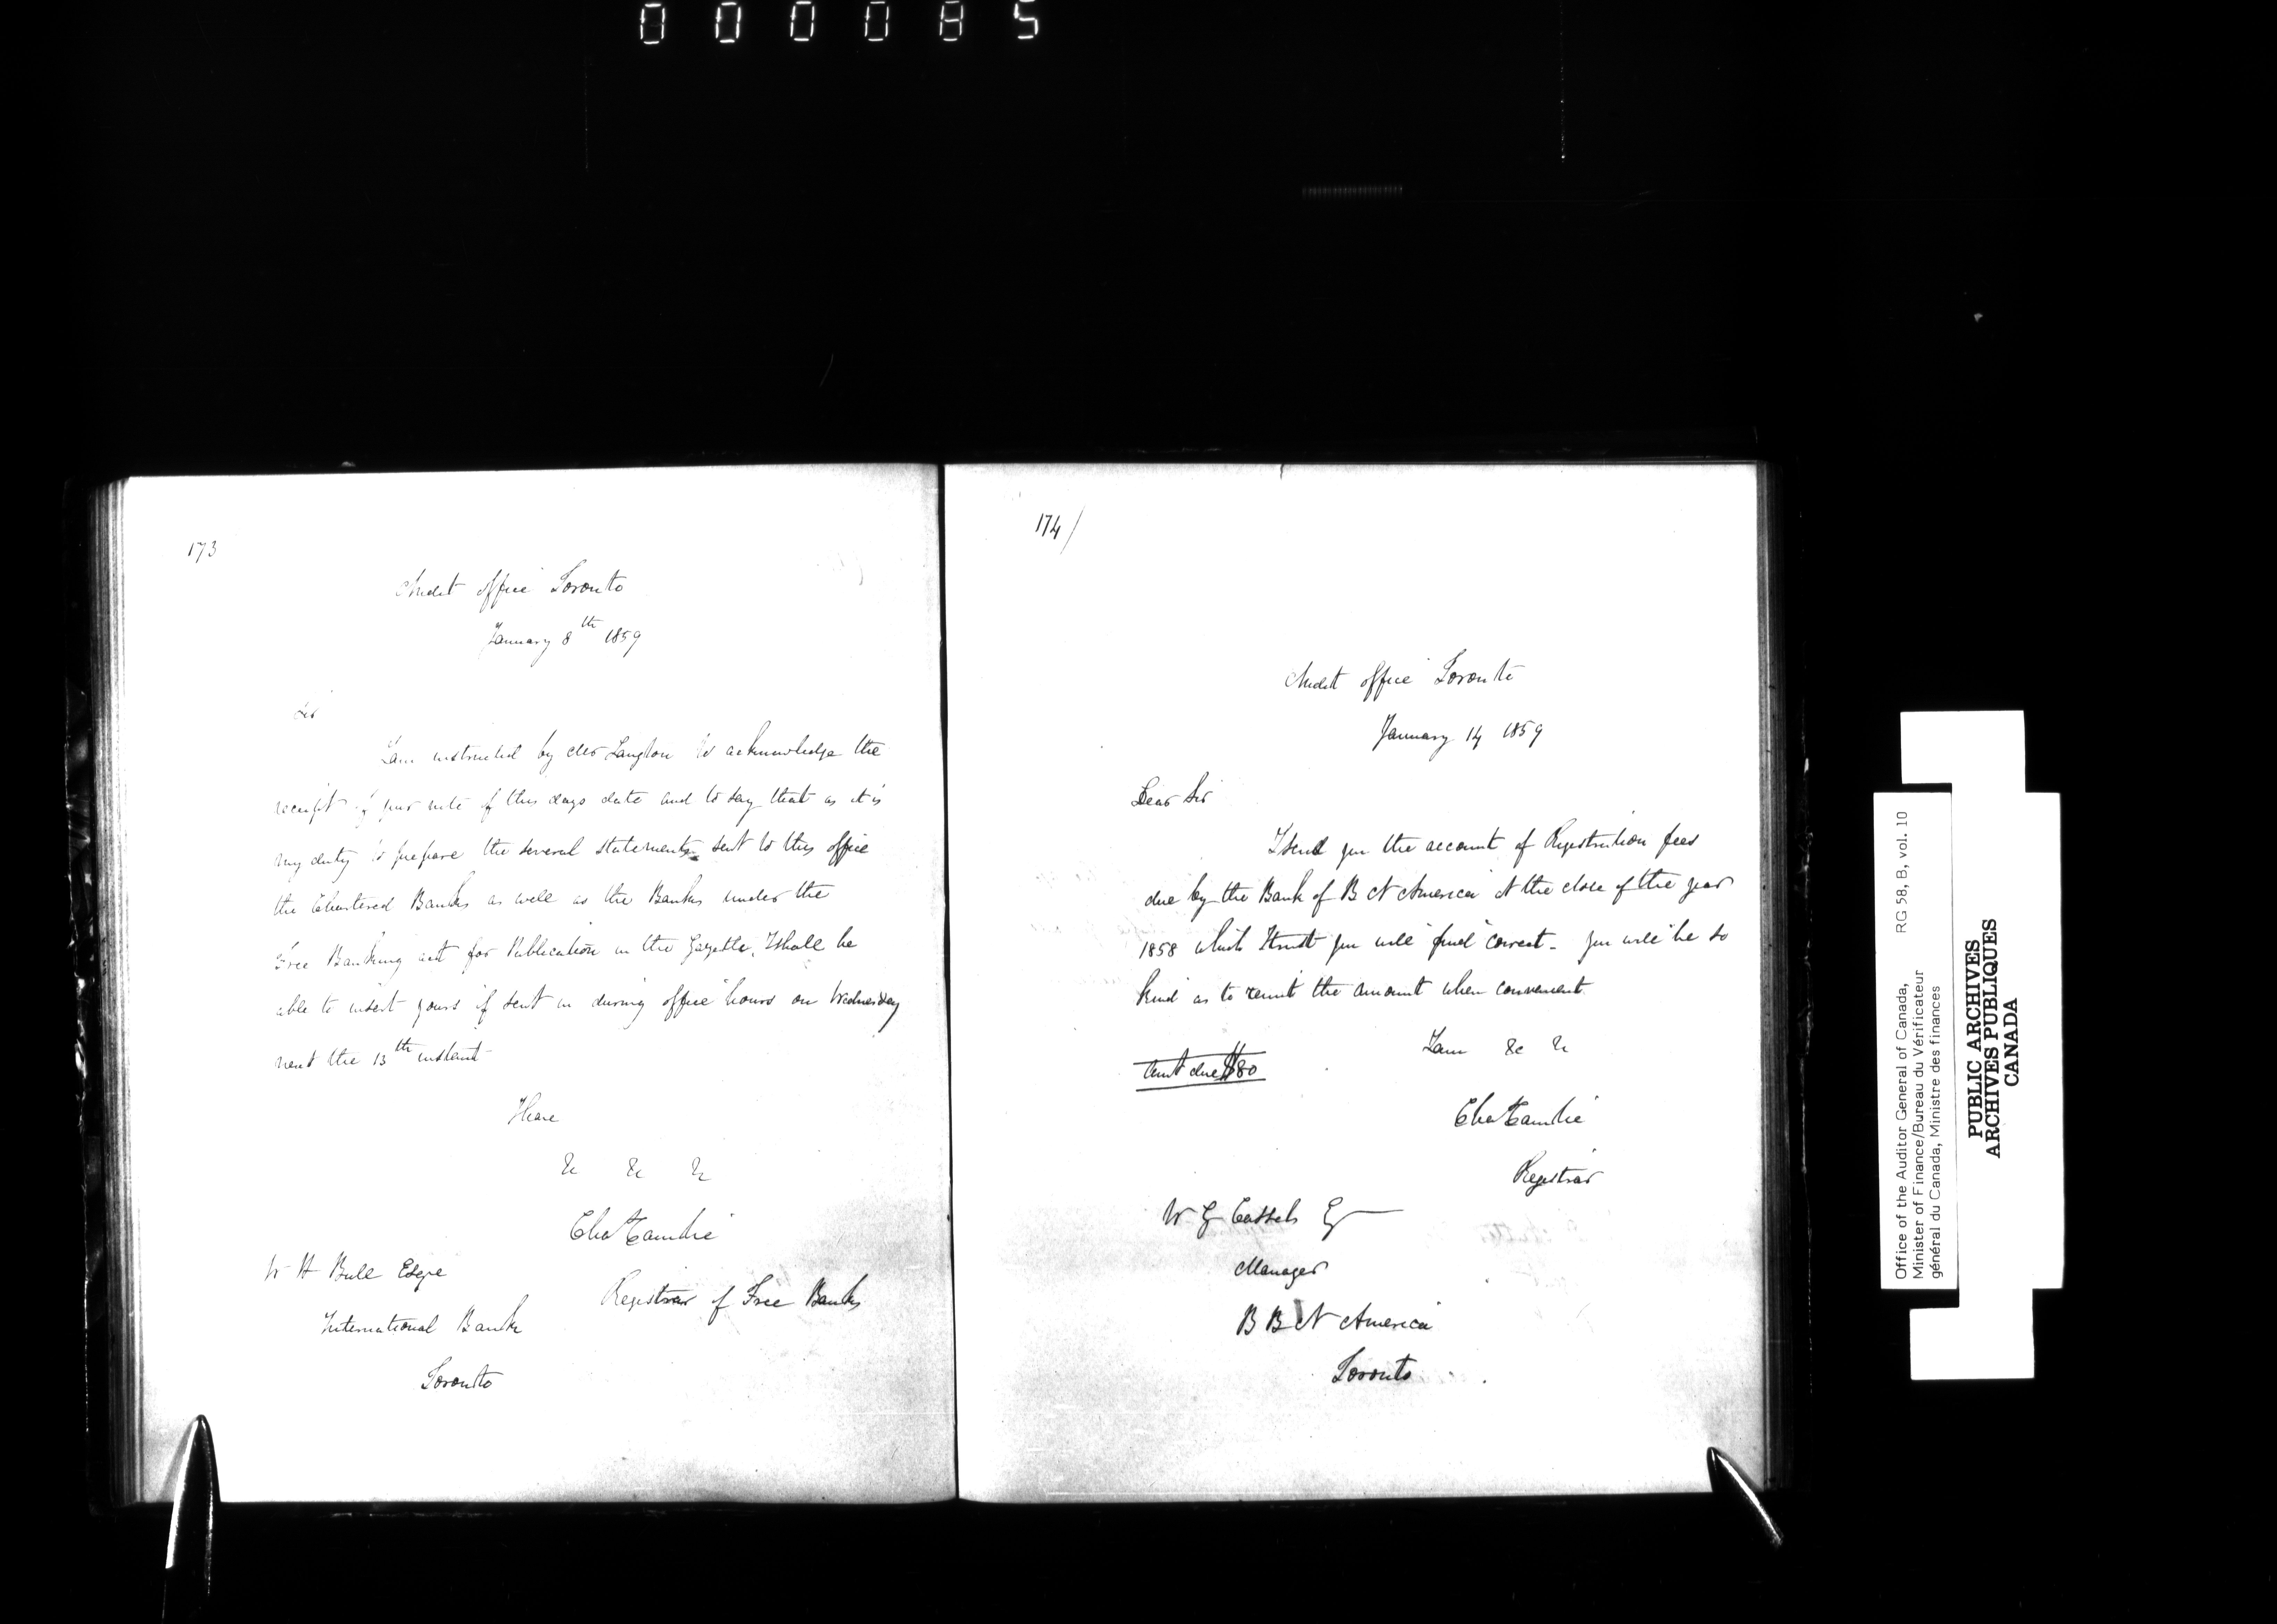 000085
173
Audit Office Toronto
January 8th 1859
Sir
I am instructed by Mr Langton to acknowledge the
receipt of your note of this days date and to say that as it is
my duty to prepare the several statements sent to this office
the Chartered Banks as well as the Banks under the
Free Banking act for Publication in the Gazette, I shall be
able to insert yours if sent in during office hours on Wednesday
next the 13th instant
I have
&c &c &c
Cha Cambie
Registrar of Free Banks
W H Bull Esqre
International Bank
Toronto
174/
Audit Office Toronto
January 14 1859
Dear Sir
I send you the account of Registration fees
due by the Bank of B N America at the close of the year
1858 which I trust you will find correct - you will be so
kind as to remit the amount when convenient
I am &c &c
Amt due $80
Cha Cambie
Registrar
W G Cassels Esq
Manager
B B N America
Toronto
Office of the Auditor General of Canada, RG 58, B, vol. 10
Minister of Finance/Bureau du Vérificateur
général du Canada, Ministre des finances
PUBLIC ARCHIVES
ARCHIVES PUBLIQUES
CANADA